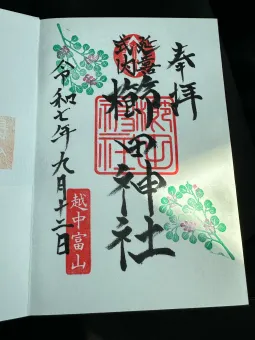 奉拝
延喜
式内
櫛田神社
越中富山
令和七年九月十二日